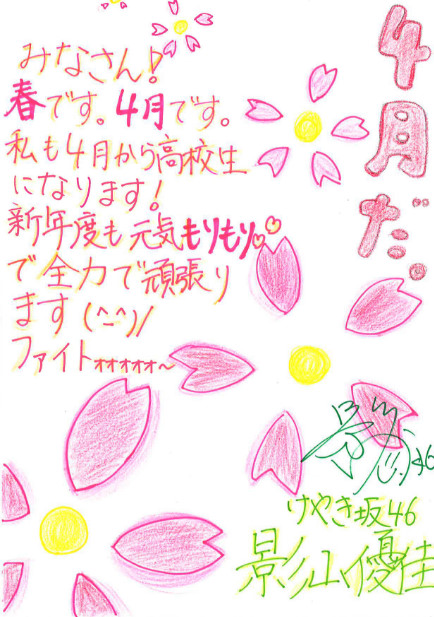 4月だ。
みなさん!
春です。4月です。
私も4月から高校生
になります!
新年度も元気もりもり
で全力で頑張り
ます(^_^)/
ファイトォォォォォ〜
46
けやき坂46
影山優佳